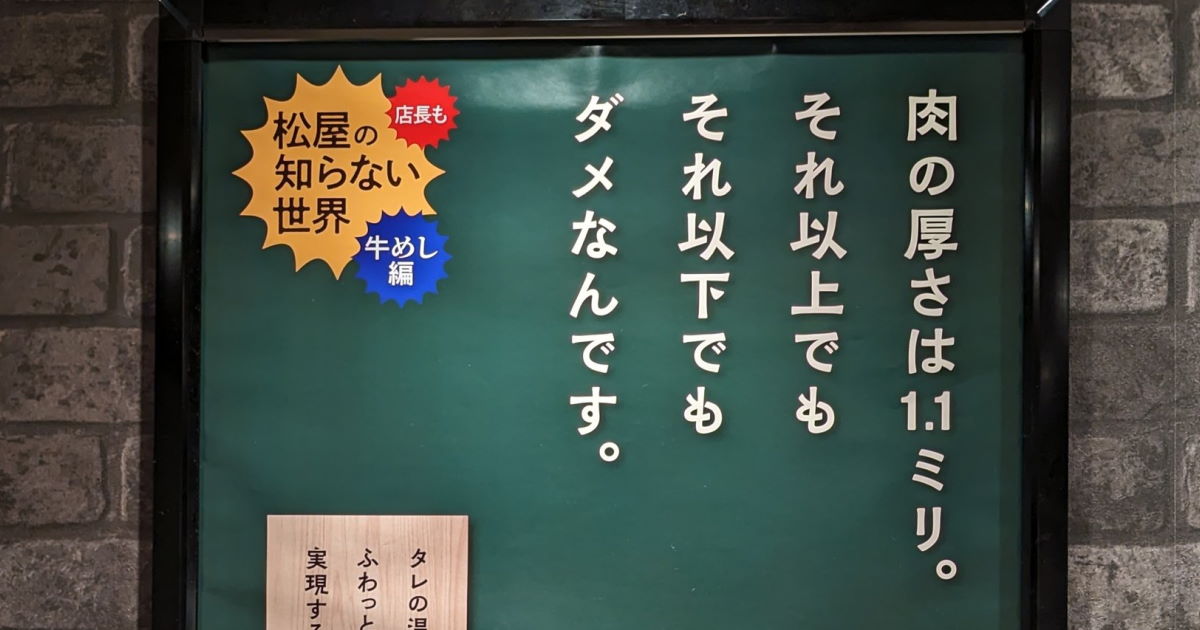 肉の厚さは1.1ミリ。
それ以上でも
それ以下でも
ダメなんです。
店長も
松屋の
知らない
世界
牛めし
編
タレの
ふわっと
実現する